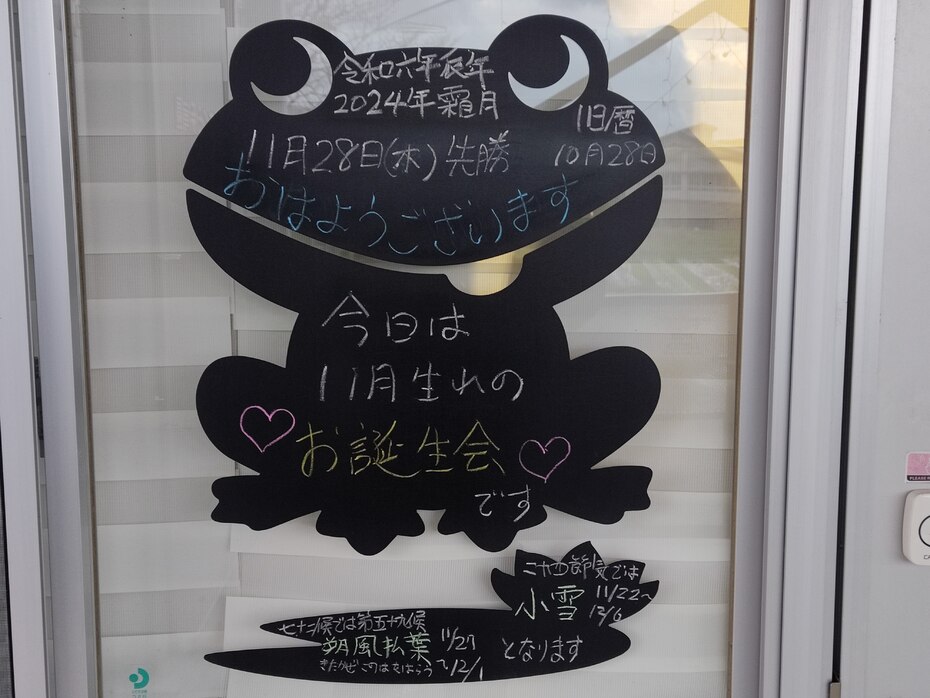 令和六年辰年
2024年霜月
旧暦
10月28日
11月28日(木)先勝
おはようございます
今日は
11月生れの
お誕生会
です
二十四節気では
小雪 11/22〜
12/6
七十二候では第五十九候
朔風払葉 11/27
きたかぜこのはをはらう 〜12/1
となります